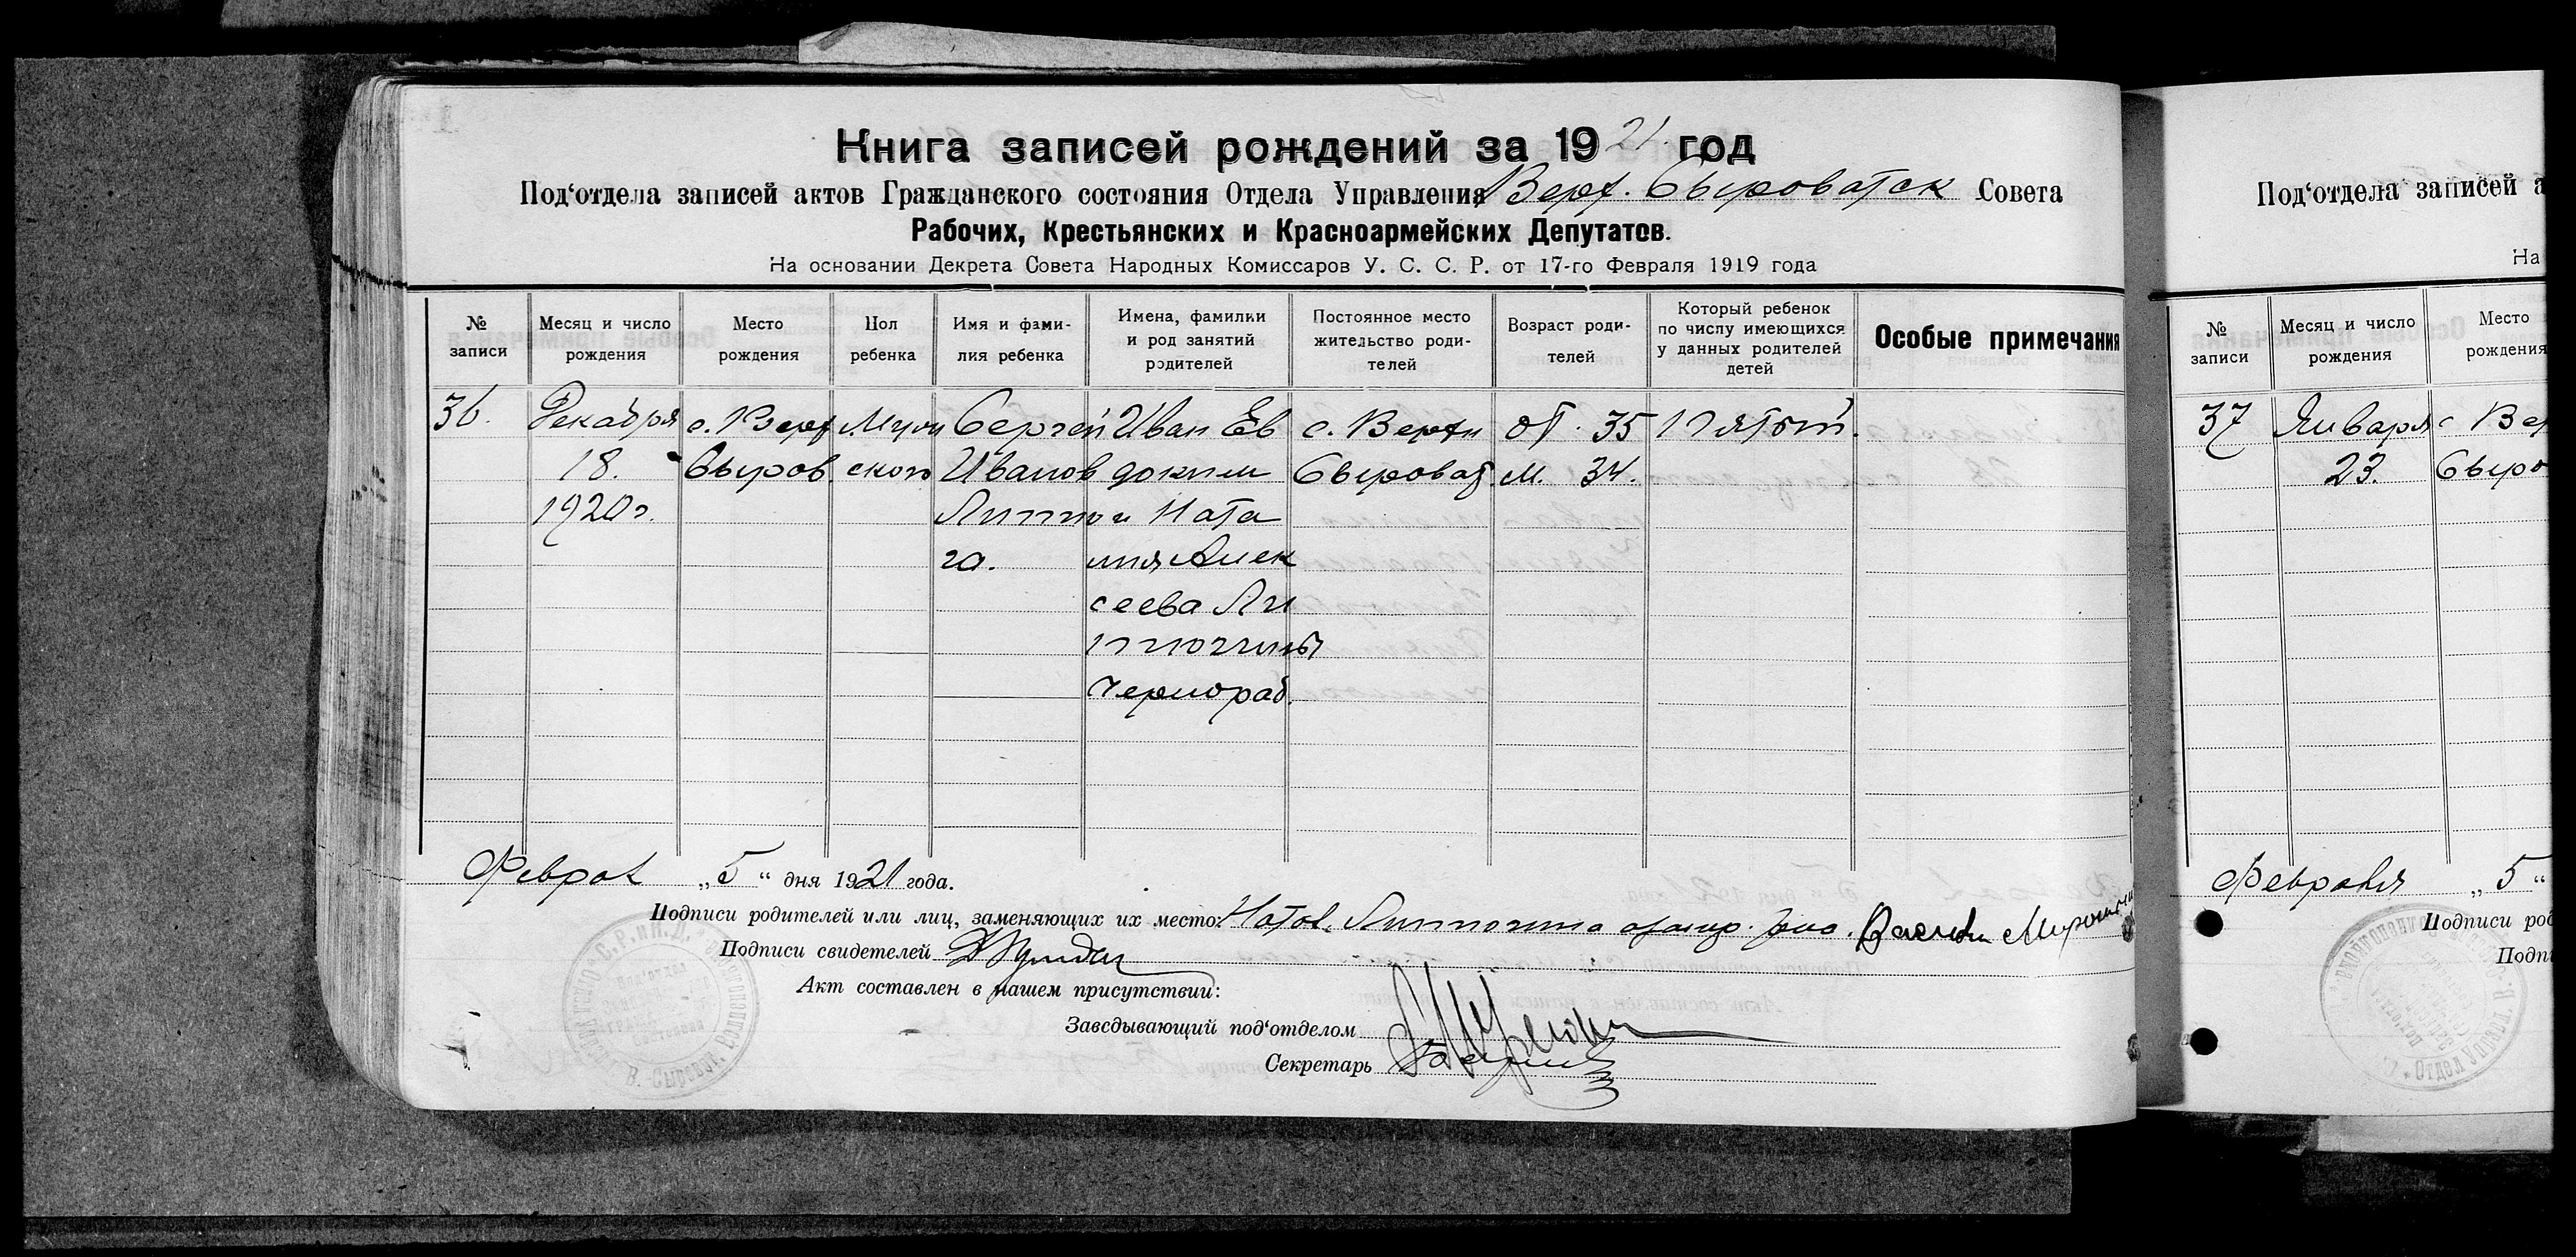 Книга записей рождений за 1921 год
Под‘отдела записей актов Гражданского состояния Отдела Управления Верх. Сыроватск Совета
Рабочих, Крестьянских и Красноармейских Депутатов.
На основании Декрета Совета Народных Комиссаров У. С. С. Р. от 17-го Февраля 1919 года
№ записи
Месяц и число рождения
Место рождения
Пол ребенка
Имя и фами-
лия ребенка
Имена, фамилии
и род занятий
родителей
Постоянное место
жительство роди-
телей
Возраст роди-
телей
Который ребенок
по числу имеющихся
у данных родителей
детей
Особые примечания
36. Декабря с. Верх Муж Сергей Иван Ев с. Верхн от. 35 Пятый.
18. Сыров. ского Иванов доким Сыроват. м. 34.
1920 г. Липпо и Ната
га. лия Алек
сеева Ли
ппочины
Чернораб.
Феврал „5“ дня 1921 года.
Подписи родителей или лиц, заменяющих их место:
Подписи свидетелей
Акт составлен в нашем присутствии:
Заведывающий под‘отделом
Секретарь
Под‘отдела записей а
На
№ записи
Месяц и число рождения
Место рождения
37 Января с Вер
23. Сыро
Февраля „5“
Подписи род
Подпи